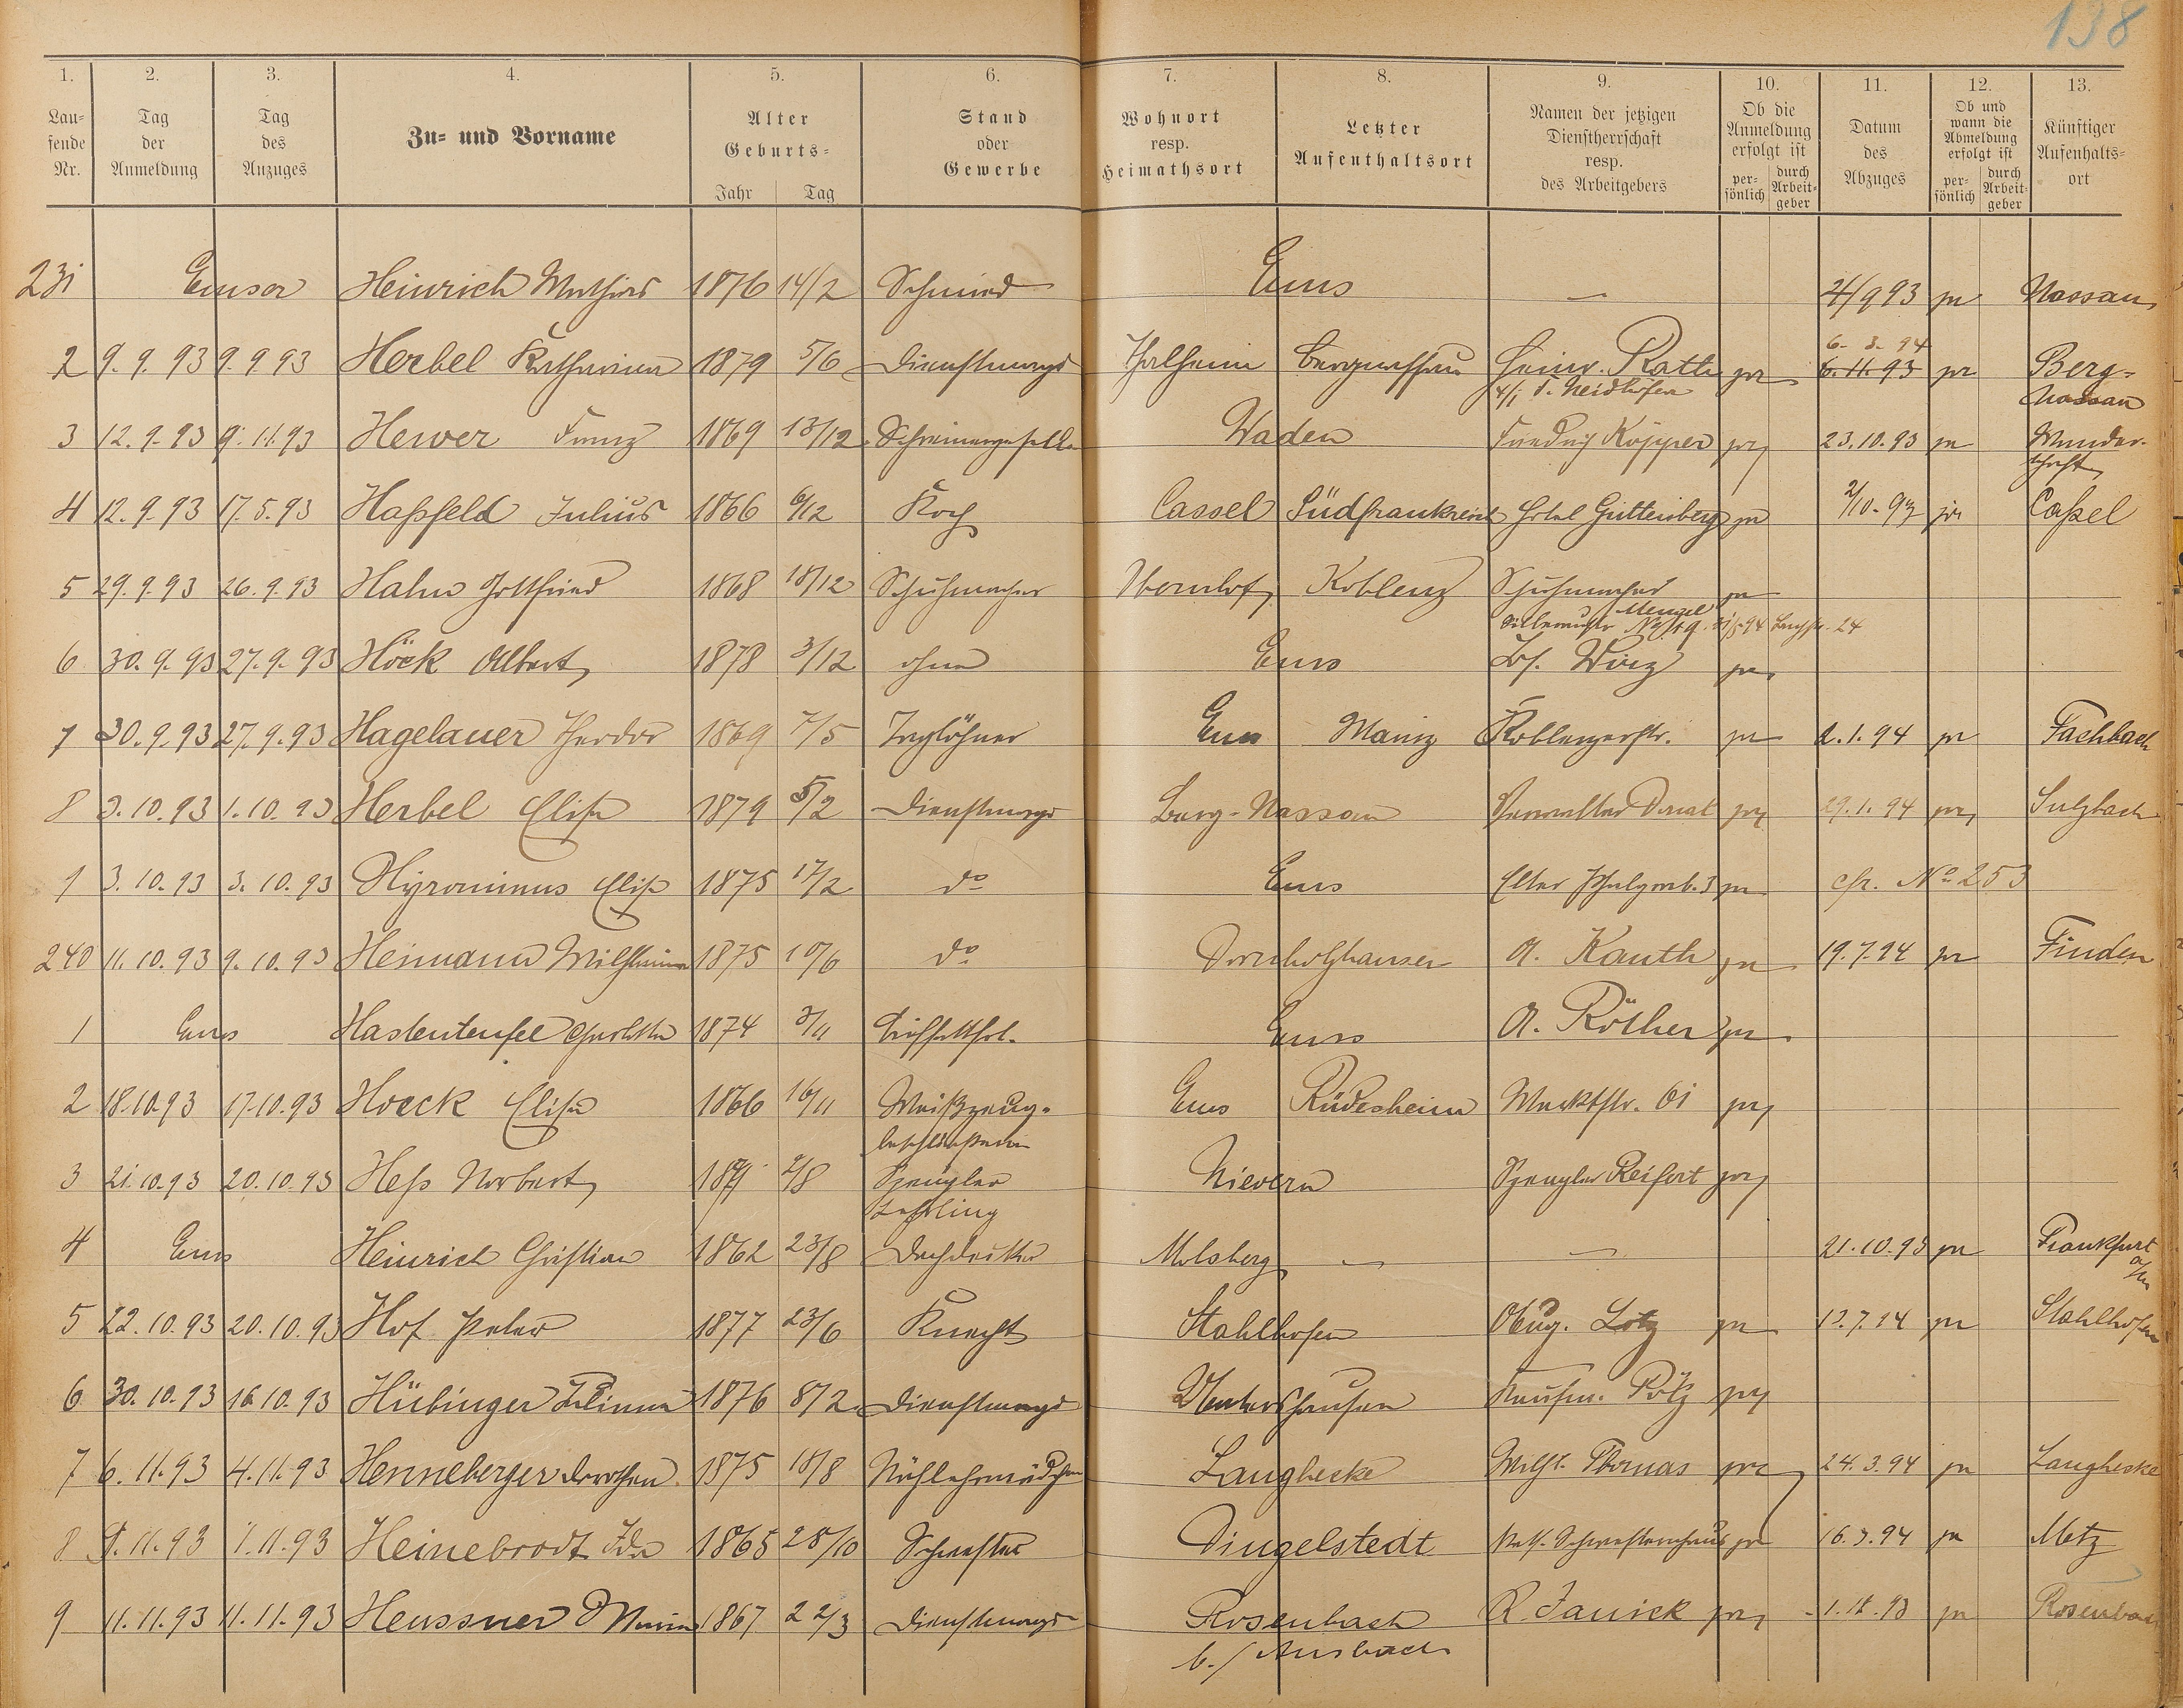 138
1. 2. 3. 4. 5. 6. 7. 8. 9. 10. 11. 12. 13.
Lau=
fende
Nr.
Tag
der
Anmeldung
Tag
des
Anzuges
Zu= und Vorname
Alter
Geburts=
Jahr Tag
Stand
oder
Gewerbe
Wohnort
resp.
Heimathsort
Letzter
Aufenthaltsort
Namen der jetzigen
Dienstherrschaft
resp.
des Arbeitgebers
Ob die
Anmeldung
erfolgt ist
per=
sönlich
durch
Arbeit=
geber
Datum
des
Abzuges
Ob und
wann die
Abmeldung
erfolgt ist
per=
sönlich
durch
Arbeit=
geber
Künftiger
Aufenhalts=
ort
231 Emser Heinrich Mathias 1876 14/2 Schmied Ems — 93 pr Nassau
6. 3. 94
2 9. 9. 93 9. 9 93 Herbel Katharina 1879 5/6 Dienstmagd Thalheim Bergnassau Heinr. Rath pr 6. 11. 93 pr Berg-
Nassau
3 12. 9. 93 9. 11. 93 Hewer Franz 1869 13/12 Schreinergeselle Waden Friedrich Küpper pr 23. 10. 93 pr Wander-
schaft
4 12. 9. 93 17. 5. 93 Haßfeld Julius 1866 6/12 Koch Cassel Südfrankreich Hotel Guttenberg pr 2/10. 93 pr Caßel
5 29. 9. 93 26. 9. 93 Hahn Gottfried 1868 18/12 Schuhmacher Koblenz Schuhmacher pr
Mengel
6 30. 9. 93 27. 9. 93 Höck Albert 1878 3/12 ohne Ems Wirz pr
7 30. 9. 93 27. 9. 93 Hagelauer Theodor 1869 7/5 Taglöhner Ems Mainz Koblenzerstr. pr 2. 1. 94 pr Fachbach
8 3. 10. 93 1. 10. 93 Herbel Elise 1879 5/2 Dienstmagd Berg-Nassau Verwalter pr 29. 1. 94 pr Sulzbach
9 3. 10. 93 3. 10. 93 Hyronimus Elise 1875 17/2 do Ems pr cfr. No 253
240 11. 10. 93 9. 10. 93 Heimann Wilhelmine 1875 10/6 do Dornholzhausen A. Kauth pr 19. 7. 94 pr
1 Ems Hastenteufel Charlotte 1874 3/11 Ems A. Röther pr
2 18. 10. 93 17. 10. 93 Hoeck Elise 1866 16/11 Weißzeug-
beschließerin Ems Rüdesheim Marktstr. 61 pr
3 21. 10. 93 20. 10. 93 Heß Norbert 2/8 Spengler
Lehrling Nievern Spengler Reifert pr
4 Ems Heinrich Christian 1862 23/8 Dachdecker Molsberg — — 21. 10. 93 pr Frankfurt
a/M
5 22. 10. 93 20. 10. 93 Hof Peter 1877 23/6 Knecht Stahlhofen Lotz pr 13. 7. 94 pr Stahlhofen
6 30. 10. 93 16. 10. 93 Hübinger 1876 8/2 Dienstmagd Kaufm. Pötz pr
7 6. 11. 93 4. 11. 93 Henneberger Dorothea 1875 18/8 Nählehrmädchen Langhecke Wilh. Thomas pr 24. 3. 94 pr Langhecke
8 9. 11. 93 1. 11. 93 Heinebrodt Ida 1865 28/10 Schwester Dingelstedt Kath. Schwesternhaus pr 16. 3. 94 pr Metz
9 11. 11. 93 11. 11. 93 Heussner Maria 1867 22/3 Dienstmagd Rosenbach
b./ Ansbach R. Janick pr 93 pr Rosenbach